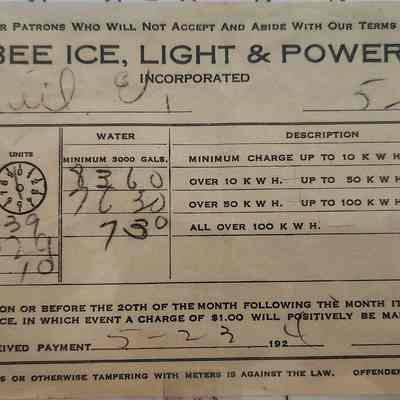 R PATRONS WHO WILL NOT ACCEPT AND ABIDE WITH OUR TERMS
BEE ICE, LIGHT & POWER
INCORPORATED
5-
WATER
DESCRIPTION
UNITS
MINIMUM 3000 GALS.
MINIMUM CHARGE UP TO 10 K W H
8360
OVER 10 K W H. UP TO 50 K W H
7630
OVER 50 K W H. UP TO 100 K W H
39
730
ALL OVER 100 K W H.
29
10
ON OR BEFORE THE 20TH OF THE MONTH FOLLOWING THE MONTH IT
CE, IN WHICH EVENT A CHARGE OF $1.00 WILL POSITIVELY BE MA
CEIVED PAYMENT 5-23 1924
S OR OTHERWISE TAMPERING WITH METERS IS AGAINST THE LAW. OFFENDE